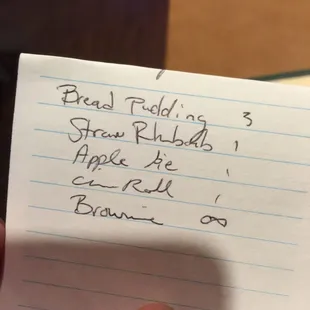 Bread Pudding 3
Straw Rhubarb 1
Apple Pie 1
Cin Roll 1
Brownie ∞